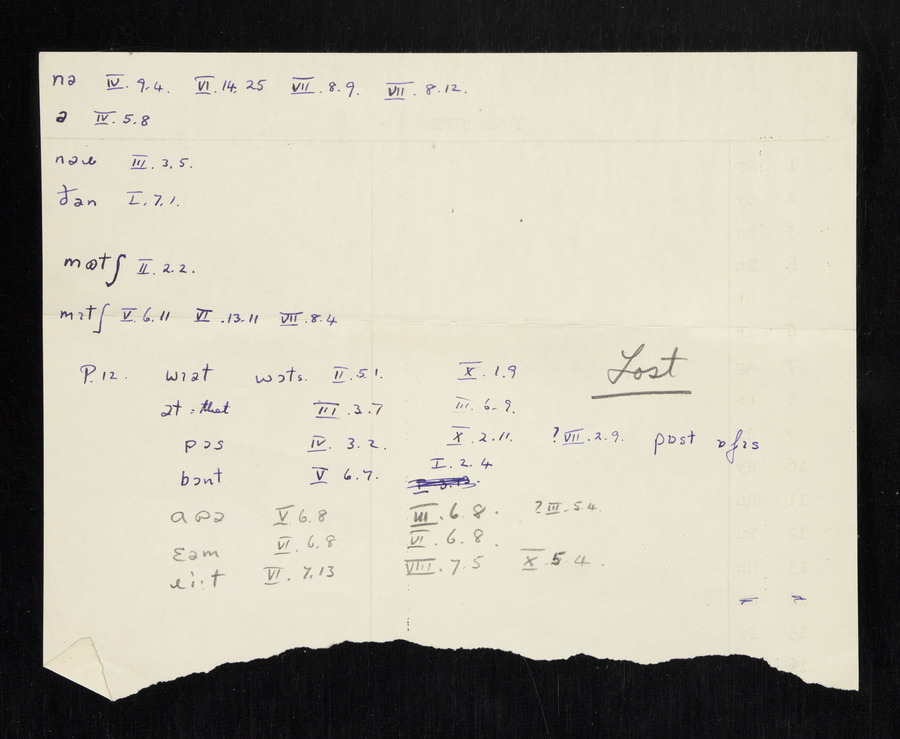 nə IV. 9.4. VI. 14. 25 VII. 8. 9. VII. 8.12.
ə IV. 5. 8
III. 3. 5.
I. 7. 1.
II. 2. 2.
V. 6. 11 VI. 13. 11 VII. 8. 4
Lost
P. 12. wɔts. II. 5. 1. X. 1. 9
ət : that III. 3. 7 III. 6. 9.
pɔs IV. 3. 2. X. 2. 11. ? VII. 2. 9. pɒst ɒfɪs
V 6. 7. I. 2. 4
V 6. 8 III. 6. 8. ? III. 5. 4.
ɛəm VI. 6. 8 VI. 6. 8.
VI. 7. 13 VIII. 7. 5 X 5 4.